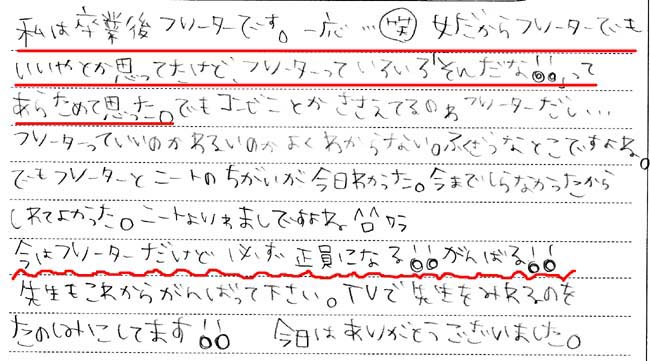 私は卒業後フリーターです。一応…(笑) 女だからフリーターでも
いいやとか思ってたけど、フリーターっていろいろ「そんだな!!」って
あらためて思った。でもコンビニとかささえてるのゎフリーターだし…
フリーターっていいのかわるいのかよくわからない。ふくざつなとこですよね。
でもフリーターとニートのちがいが今日わかった。今までしらなかったから
しれてよかった。ニートよりゎましですよね ^^
今はフリーターだけど必ず正員になる!!がんばる!!
先生もこれからがんばって下さい。TVで先生をみれるのを
たのしみにしてます!! 今日はありがとうございました。